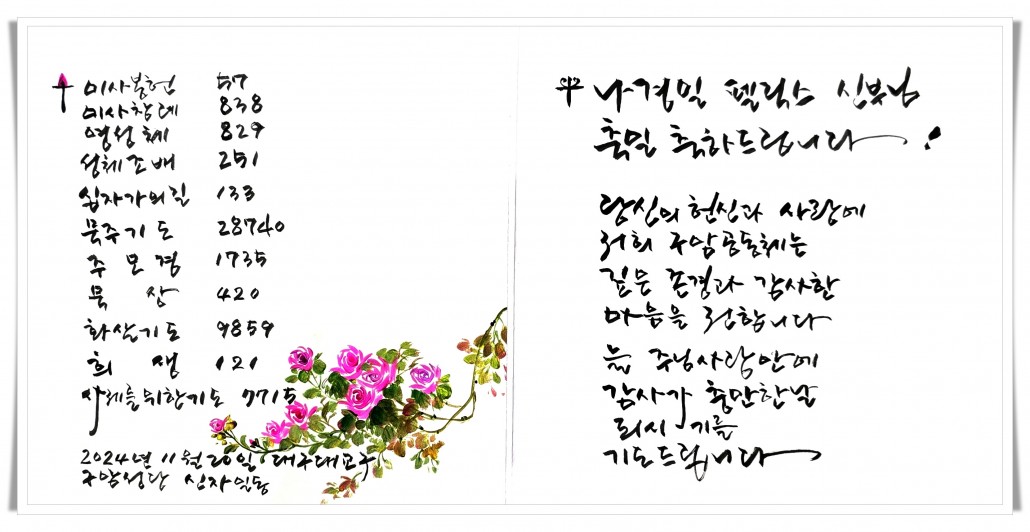 미사봉헌 57
미사참례 838
영성체 829
성체조배 251
십자가의길 133
묵주기도 28740
주모경 1735
묵상 420
화살기도 9859
희생 121
사제를위한기도 7715
2024년 11월 20일 대구대교구
구암성당 신자일동
나경일 펠릭스 신부님
축일 축하드립니다!
당신의 헌신과 사랑에
저희 구암공동체는
깊은 존경과 감사한
마음을 전합니다
늘 주님사랑안에
감사가 충만한날
되시기를
기도드립니다